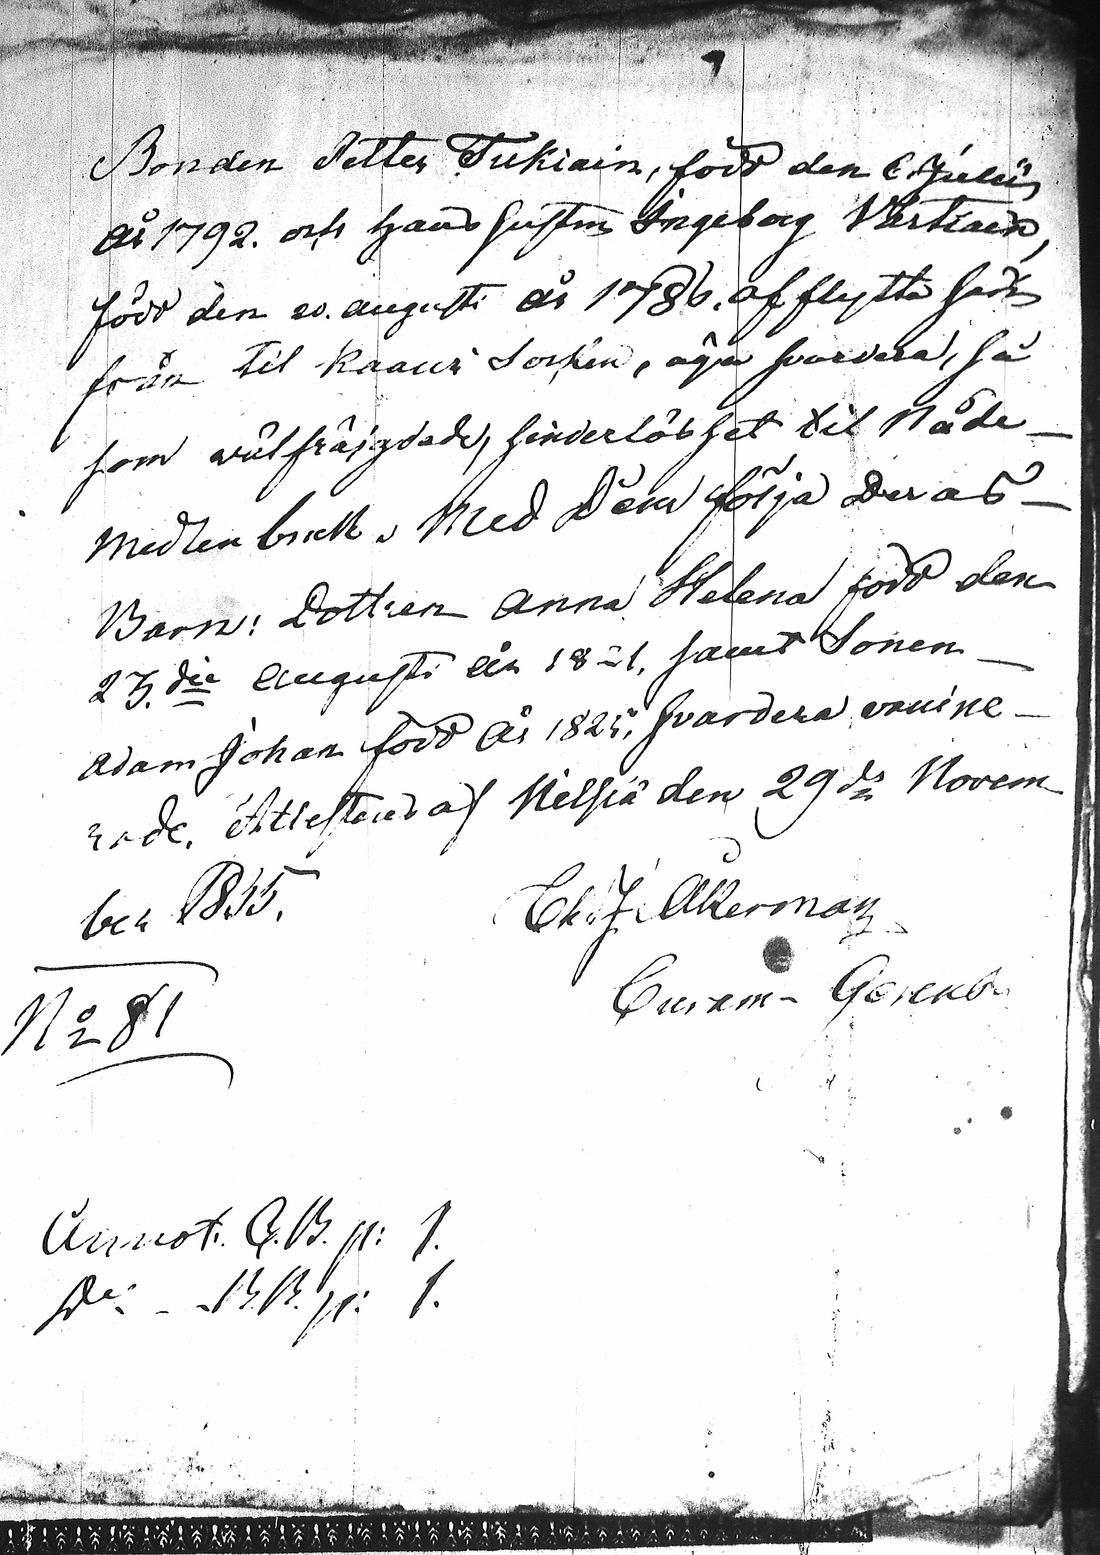 Bonden Petter Tukiain, född den 6. Julii
år 1792. och Hans hustru Ingeborg Vartiain,
född den 20. augusti år 1786. afflytta här
från til Kaavi Sockn, äga hvardera, så
som välfräjdade, hinderlöshet til Nåde-
medlen bruk. Med Dem följa Deras
Barn: Dottren Anna Helena född den
23.die Augusti år 1821, samt Sonen
Adam Johan född år 1825, hvardera vaccine-
rade. Attesteras af Nilsiä den 29de Novem
ber 1835.
Ch. J. Åkerman
No 81
Annot. C.B. p: 1.
Do: - - B.B. p: 1.